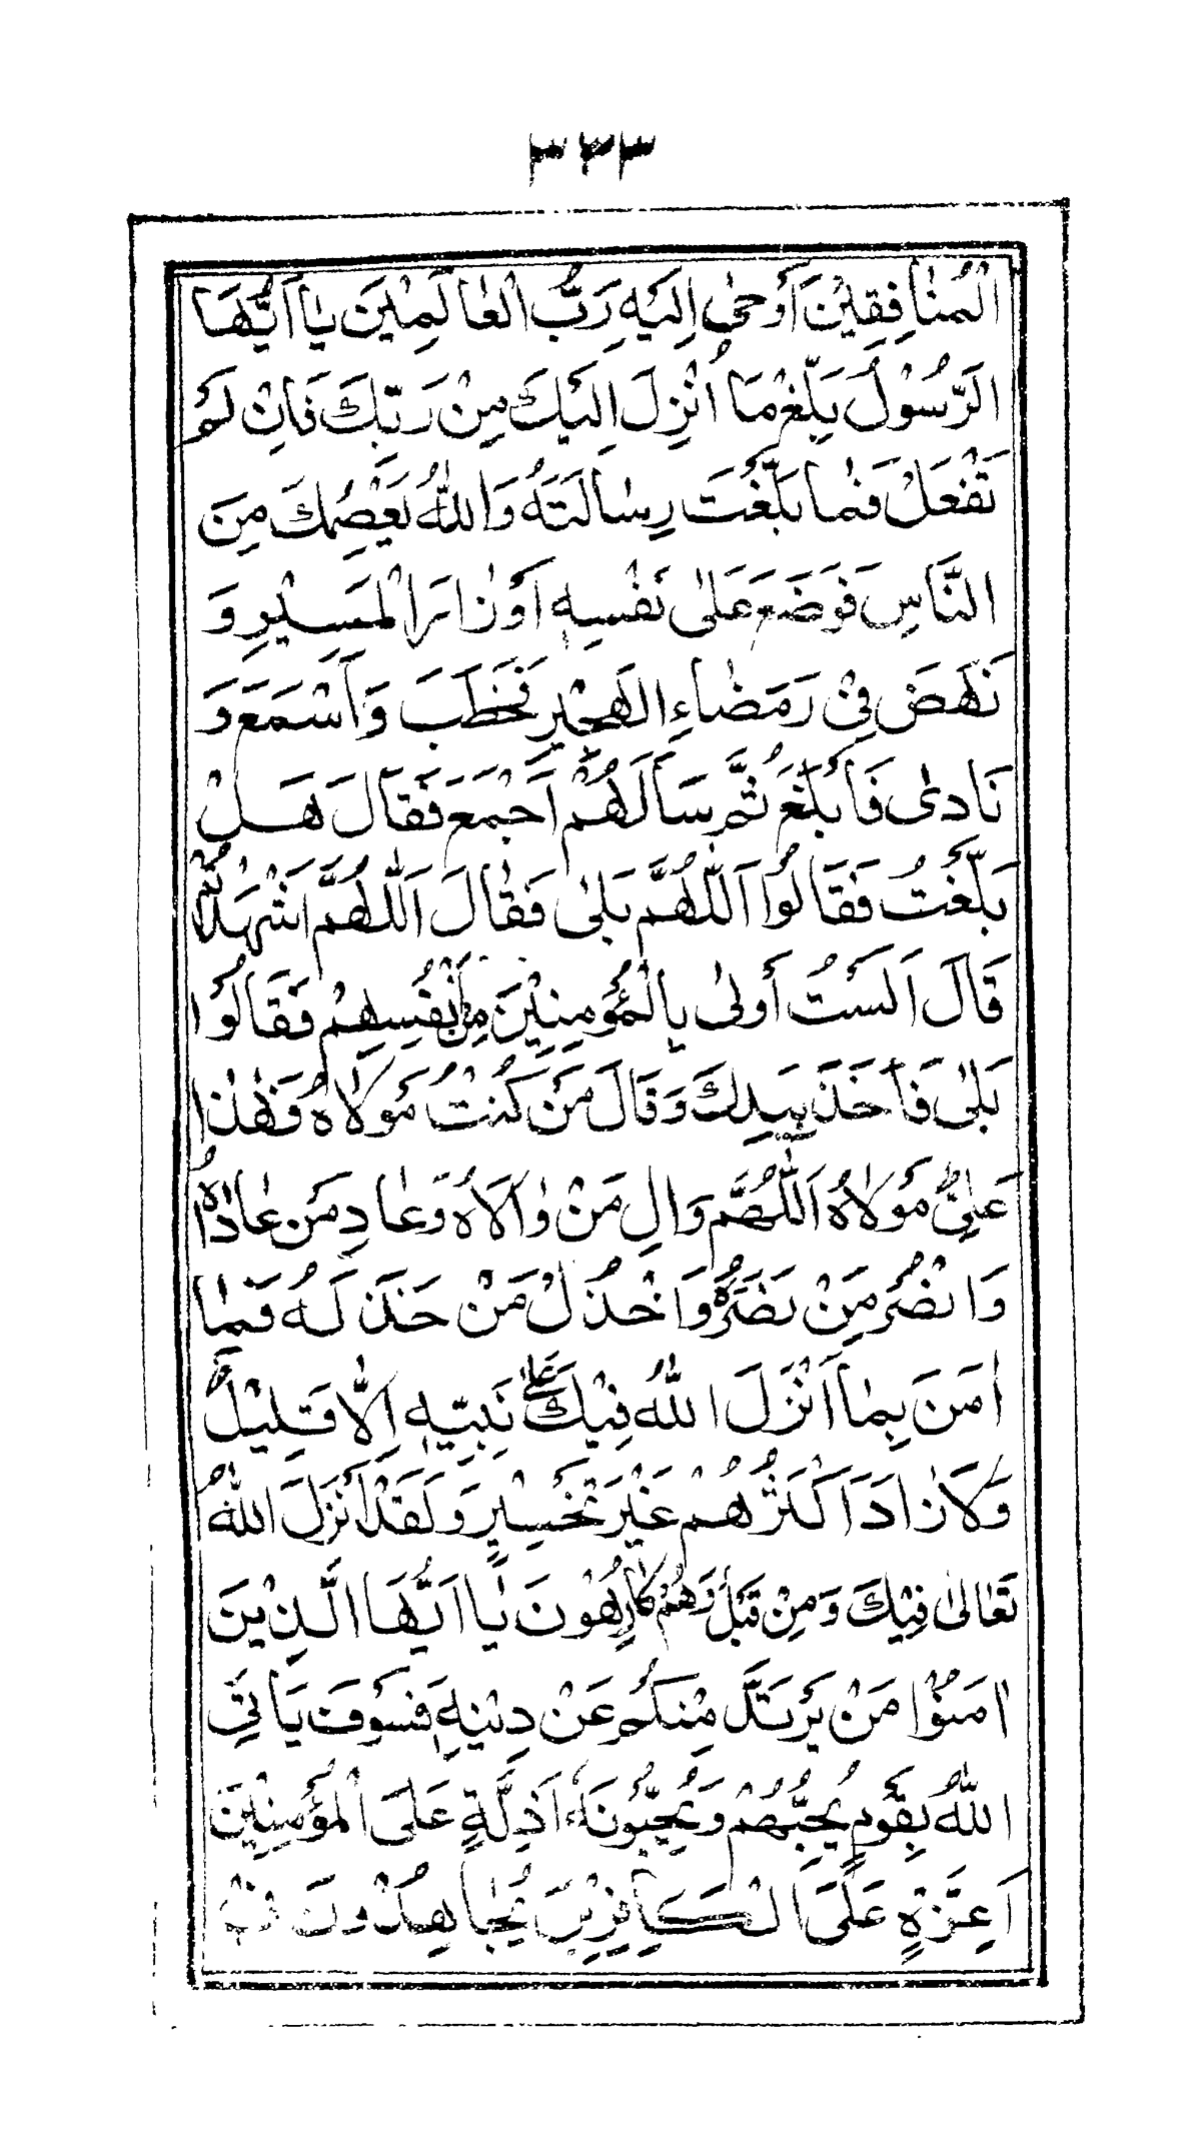 ٣٣٣
الْمُنٰافِقِيْنَ اَوْحٰى اِلَيْهِ رَبُّ الْعٰالَمِيْنَ يٰا اَيُّهَا
الرَّسُوْلُ بَلِّغْ مَا اُنْزِلَ اِلَيْكَ مِنْ رَبِّكَ فَاِنْ لَمْ
تَفْعَلْ فَمٰا بَلَّغْتَ رِسٰالَتَهُ وَاللّٰهُ يَعْصِمُكَ مِنَ
النَّاسِ فَوَضَعَ عَلٰى نَفْسِهٖ اَوْزٰارَ الْمَسِيْرِ وَ
نَهَضَ فِيْ رَمَضٰاءِ الْهَجْيرِ فَخَطَبَ وَاَسْمَعَ وَ
نَادٰى فَاَبْلَغَ ثُمَّ سَاَلَهُمْ اَجْمَعَ فَقَالَ هَلْ
بَلَّغْتُ فَقَالُوا اَللّٰهُمَّ بَلٰى فَقٰالَ اَللّٰهُمَّ اشْهَدْ ثُمَّ
قَالَ اَلَسْتُ أَوْلٰى بِالْمُؤْمِنِيْنَ مِنْ اَنْفُسِهِمْ فَقَالُوا
بَلٰى فَاَخَذَ بِيَدِكَ وَقَالَ مَنْ كُنْتُ مَوْلَاهُ فَهٰذٰا
عَلِيٌّ مَوْلَاهُ اَللّٰهُمَّ وَالِ مَنْ وٰالَاهُ وَعٰادِ مَنْ عٰادٰاهُ
وَانْصُرْ مَنْ نَصَرَهُ وَاخْذُلْ مَنْ خَذَلَهُ فَمٰا
اٰمَنَ بِمٰا اَنْزَلَ اللّٰهُ فِيْكَ عَلٰى نَبِيِّهٖ اِلّٰا قَلِيْلٌ
وَلَازٰادَ اَكْثَرُهُمْ غَيْرَ تَخْسِيْرٍ وَلَقَدْ اَنْزَلَ اللّٰهُ
تَعٰالٰى فِيْكَ وَمِنْ قَبْلُ وَهُمْ كٰارِهُوْنَ يٰا اَيُّهَا الَّذِيْنَ
اٰمَنُوْا مَنْ يَرْتَدَّ مِنْكُمْ عَنْ دِيْنِهٖ فَسَوْفَ يَاْتِي
اللّٰهُ بِقَوْمٍ يُحِبُّهُمْ وَيُحِبُّوْنَهُ اَذِلَّةٍ عَلَى الْمُؤْمِنِيْنَ
اَعِزَّةٍ عَلَى الْكٰافِرِيْنَ يُجٰاهِدُوْنَ فِيْ